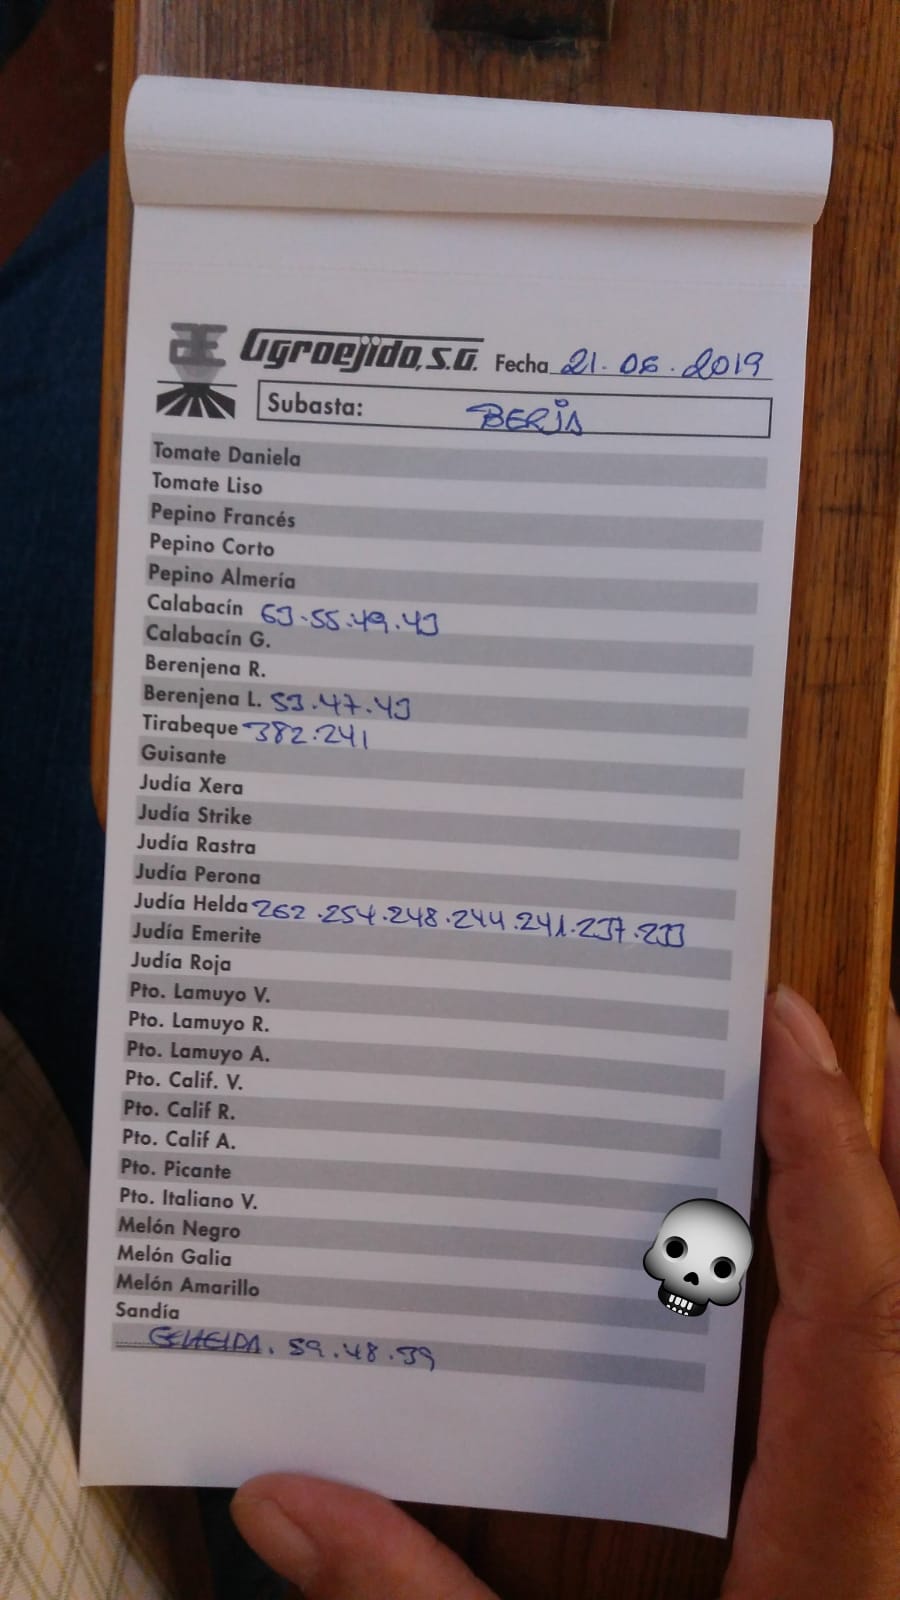 Agroejido, S.A. Fecha 21.06.2019
Subasta: BERJA
Tomate Daniela
Tomate Liso
Pepino Francés
Pepino Corto
Pepino Almería
Calabacín 63.55.49.43
Calabacín G.
Berenjena R.
Berenjena L. 53.47.43
Tirabeque 382.241
Guisante
Judía Xera
Judía Strike
Judía Rastra
Judía Perona
Judía Helda 262.254.248.244.241.237.233
Judía Emerite
Judía Roja
Pto. Lamuyo V.
Pto. Lamuyo R.
Pto. Lamuyo A.
Pto. Calif. V.
Pto. Calif R.
Pto. Calif A.
Pto. Picante
Pto. Italiano V.
Melón Negro
Melón Galia
Melón Amarillo
Sandía
59.48.39